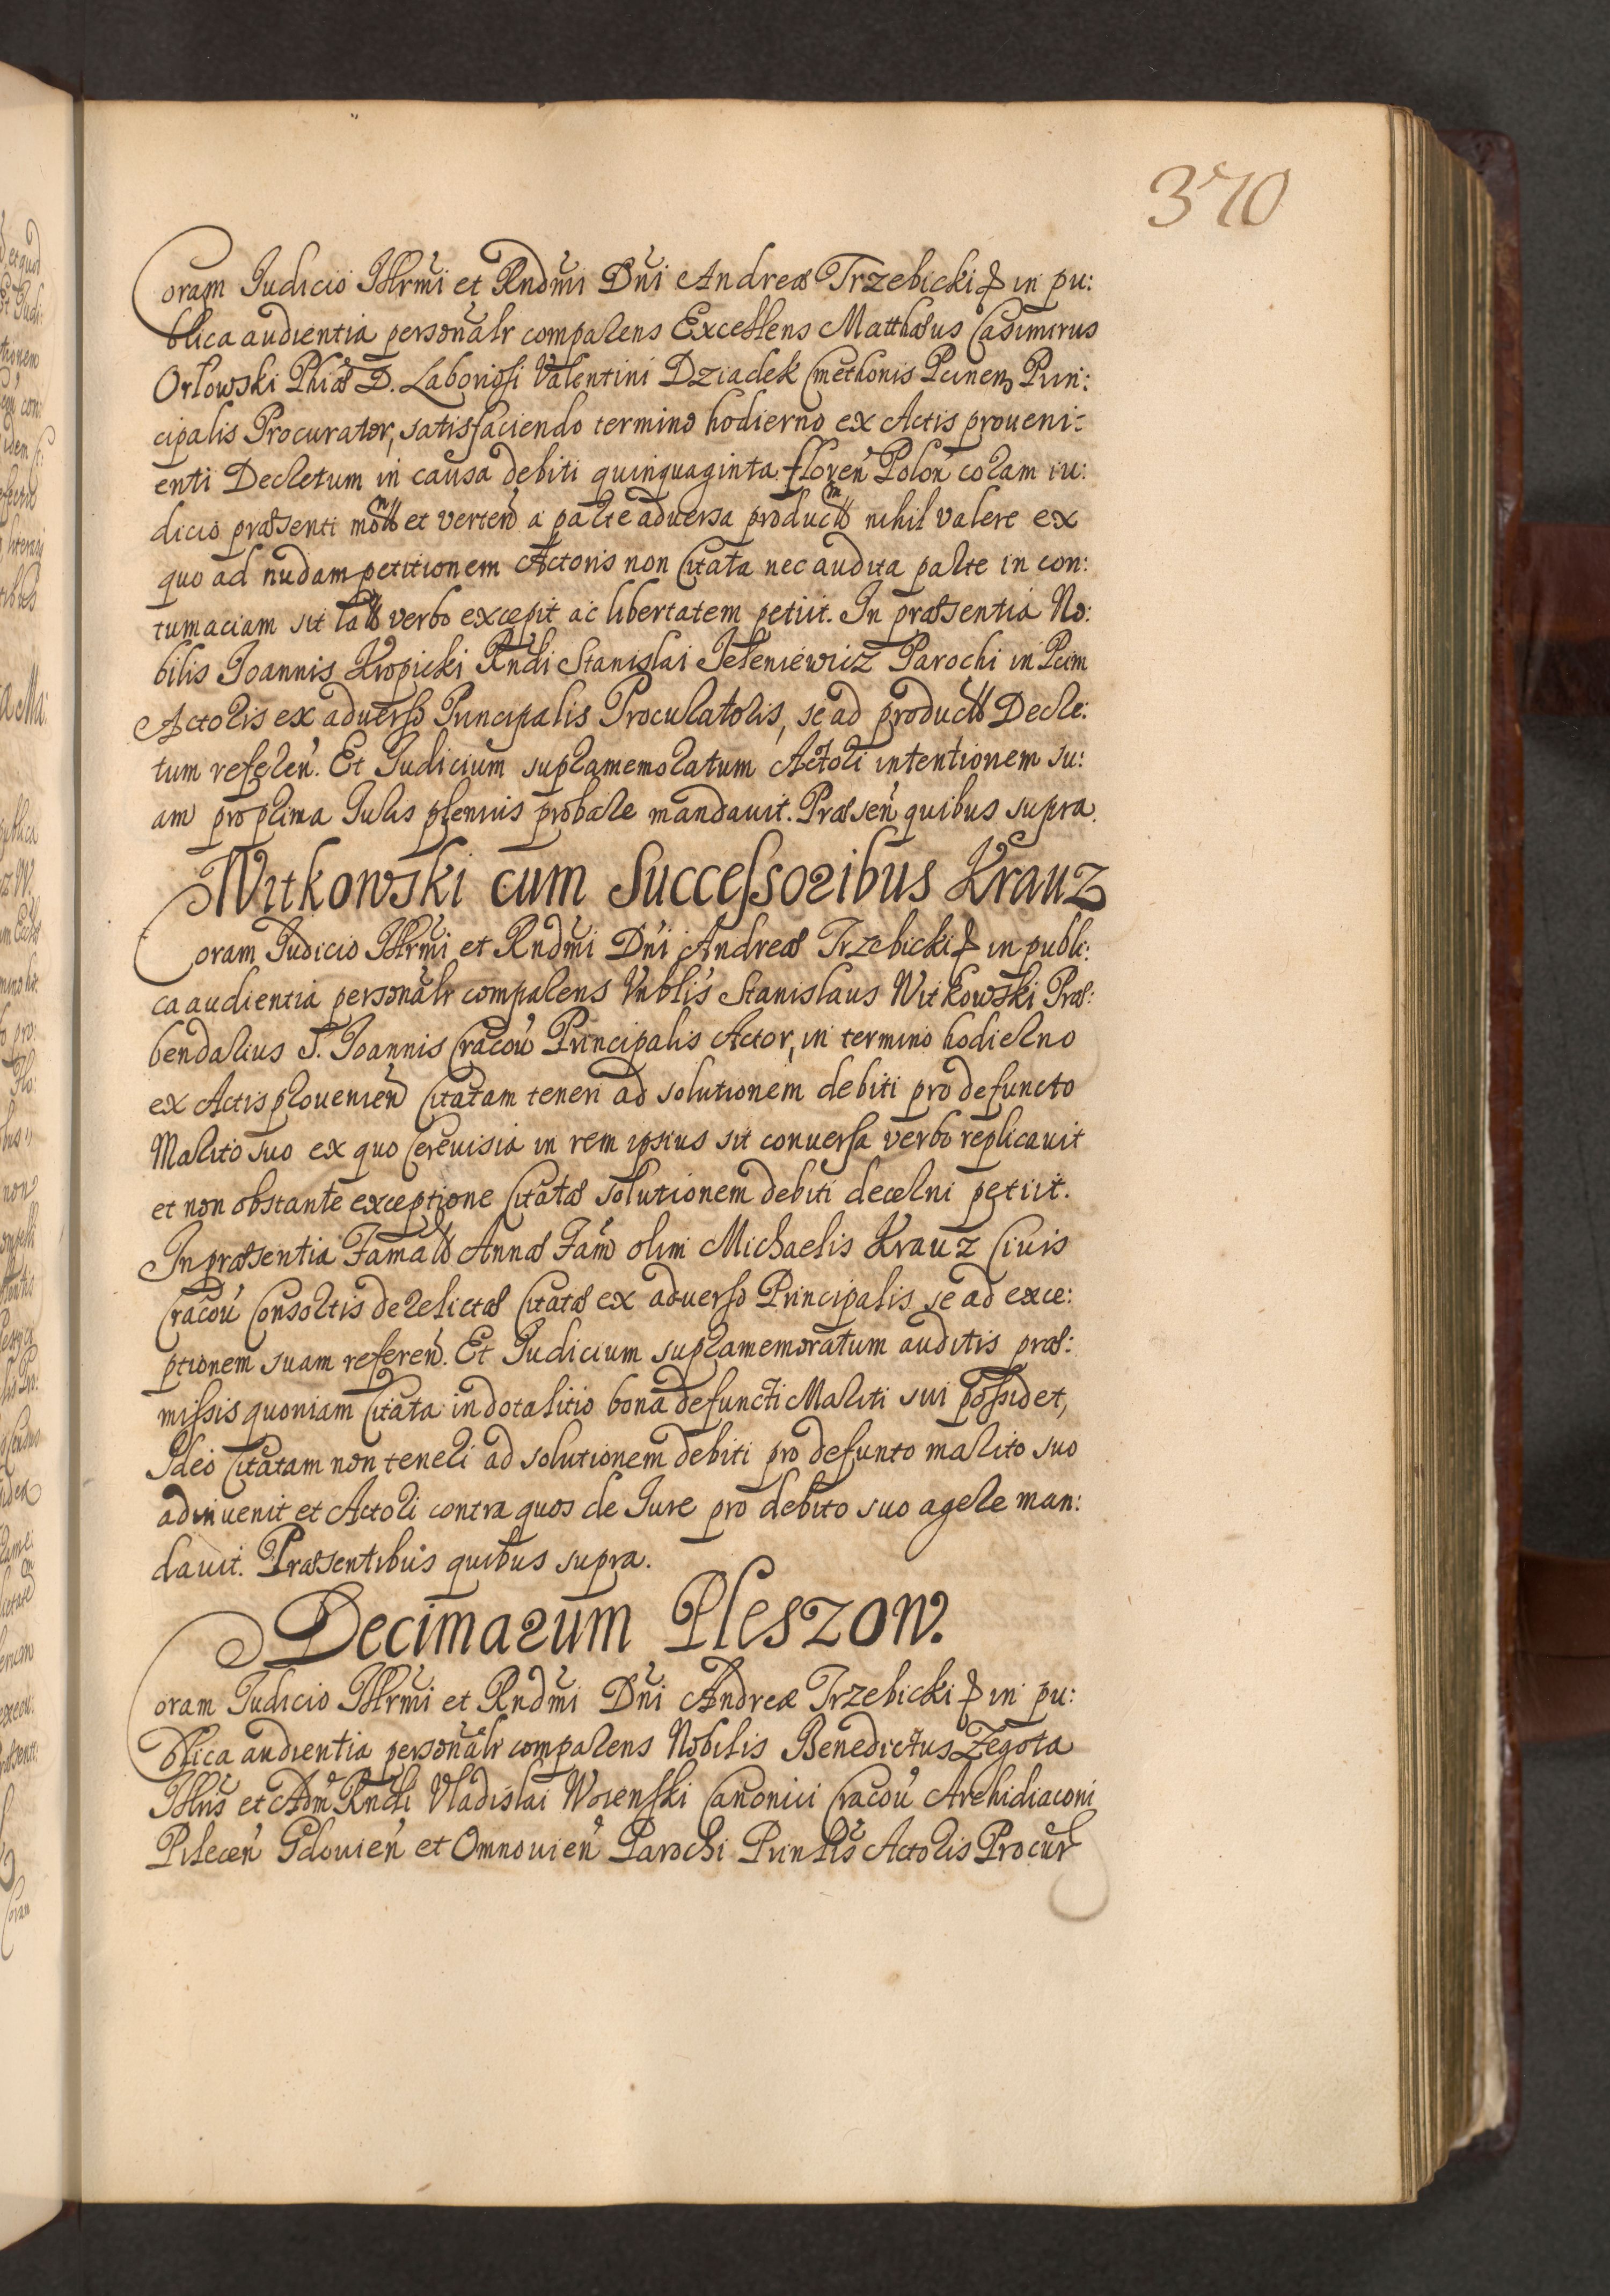 370
Coram Judicio Jllrmi et Rndmi Dni Andreæ Trzebicki & in pu:
blica audientia personalr comparens Excellens Matthæus Casimirus
Orłowski Phiæ D. Laboriosi Valentini Dziadek Cmethonis Pcinen Prin:
cipalis Procurator, satisfaciendo termino hodierno ex Actis proueni:
enti Decretum in causa debiti quinquaginta floren Polon coram iu:
dicio præsenti et verten a parte aduersa nihil valere ex
quo ad nudam petitionem Actoris non Citata nec audita parte in con:
tumaciam sit verbo excepit ac libertatem petiit. In præsentia No:
bilis Joannis Kropicki Rndi Stanislai Jeleniewicz Parochi in Pcim
Actoris ex aduerso Principalis Procuratoris, se ad Decre:
tum referen. Et Judicium supramemoratum Actori intentionem su:
am pro prima Juris plenius probare mandauit. Præsen quibus supra.
Witkowski cum Successoribus Krauz
Coram Judicio Jllrmi et Rndmi Dni Andreæ Trzebicki & in publi:
ca audientia personalr comparens Vnblis Stanislaus Witkowski Præ:
bendarius S. Joannis Cracou Principalis Actor, in termino hodierno
ex Actis prouenien Citatam teneri ad solutionem debiti pro defuncto
Marito suo ex quo Cereuisia in rem ipsius sit conuersa verbo replicauit
et non obstante exceptione Citatæ solutionem debiti decerni petiit.
In præsentia Annæ Fam olim Michaelis Krauz Ciuis
Cracou Consortis derelictæ Citatæ ex aduerso Principalis se ad exce:
ptionem suam referen. Et Judicium supramemoratum auditis præ:
missis quoniam Citata in dotalitio bona defuncti Mariti sui possidet,
Ideo Citatam non teneri ad solutionem debiti pro defunto marito suo
adinuenit et Actori contra quos de Jure pro debito suo agere man:
dauit. Præsentibus quibus supra.
Decimarum Pleszow.
Coram Judicio Jllrmi et Rndmi Dni Andreæ Trzebicki & in pu:
blica audientia personalr comparens Nobilis Benedictus Zegota
Jllris et Adm Rndi Vladislai Canonici Cracou Archidiaconi
Pilecen Gdouien et Omnouien Parochi Prinplis Actoris Procur